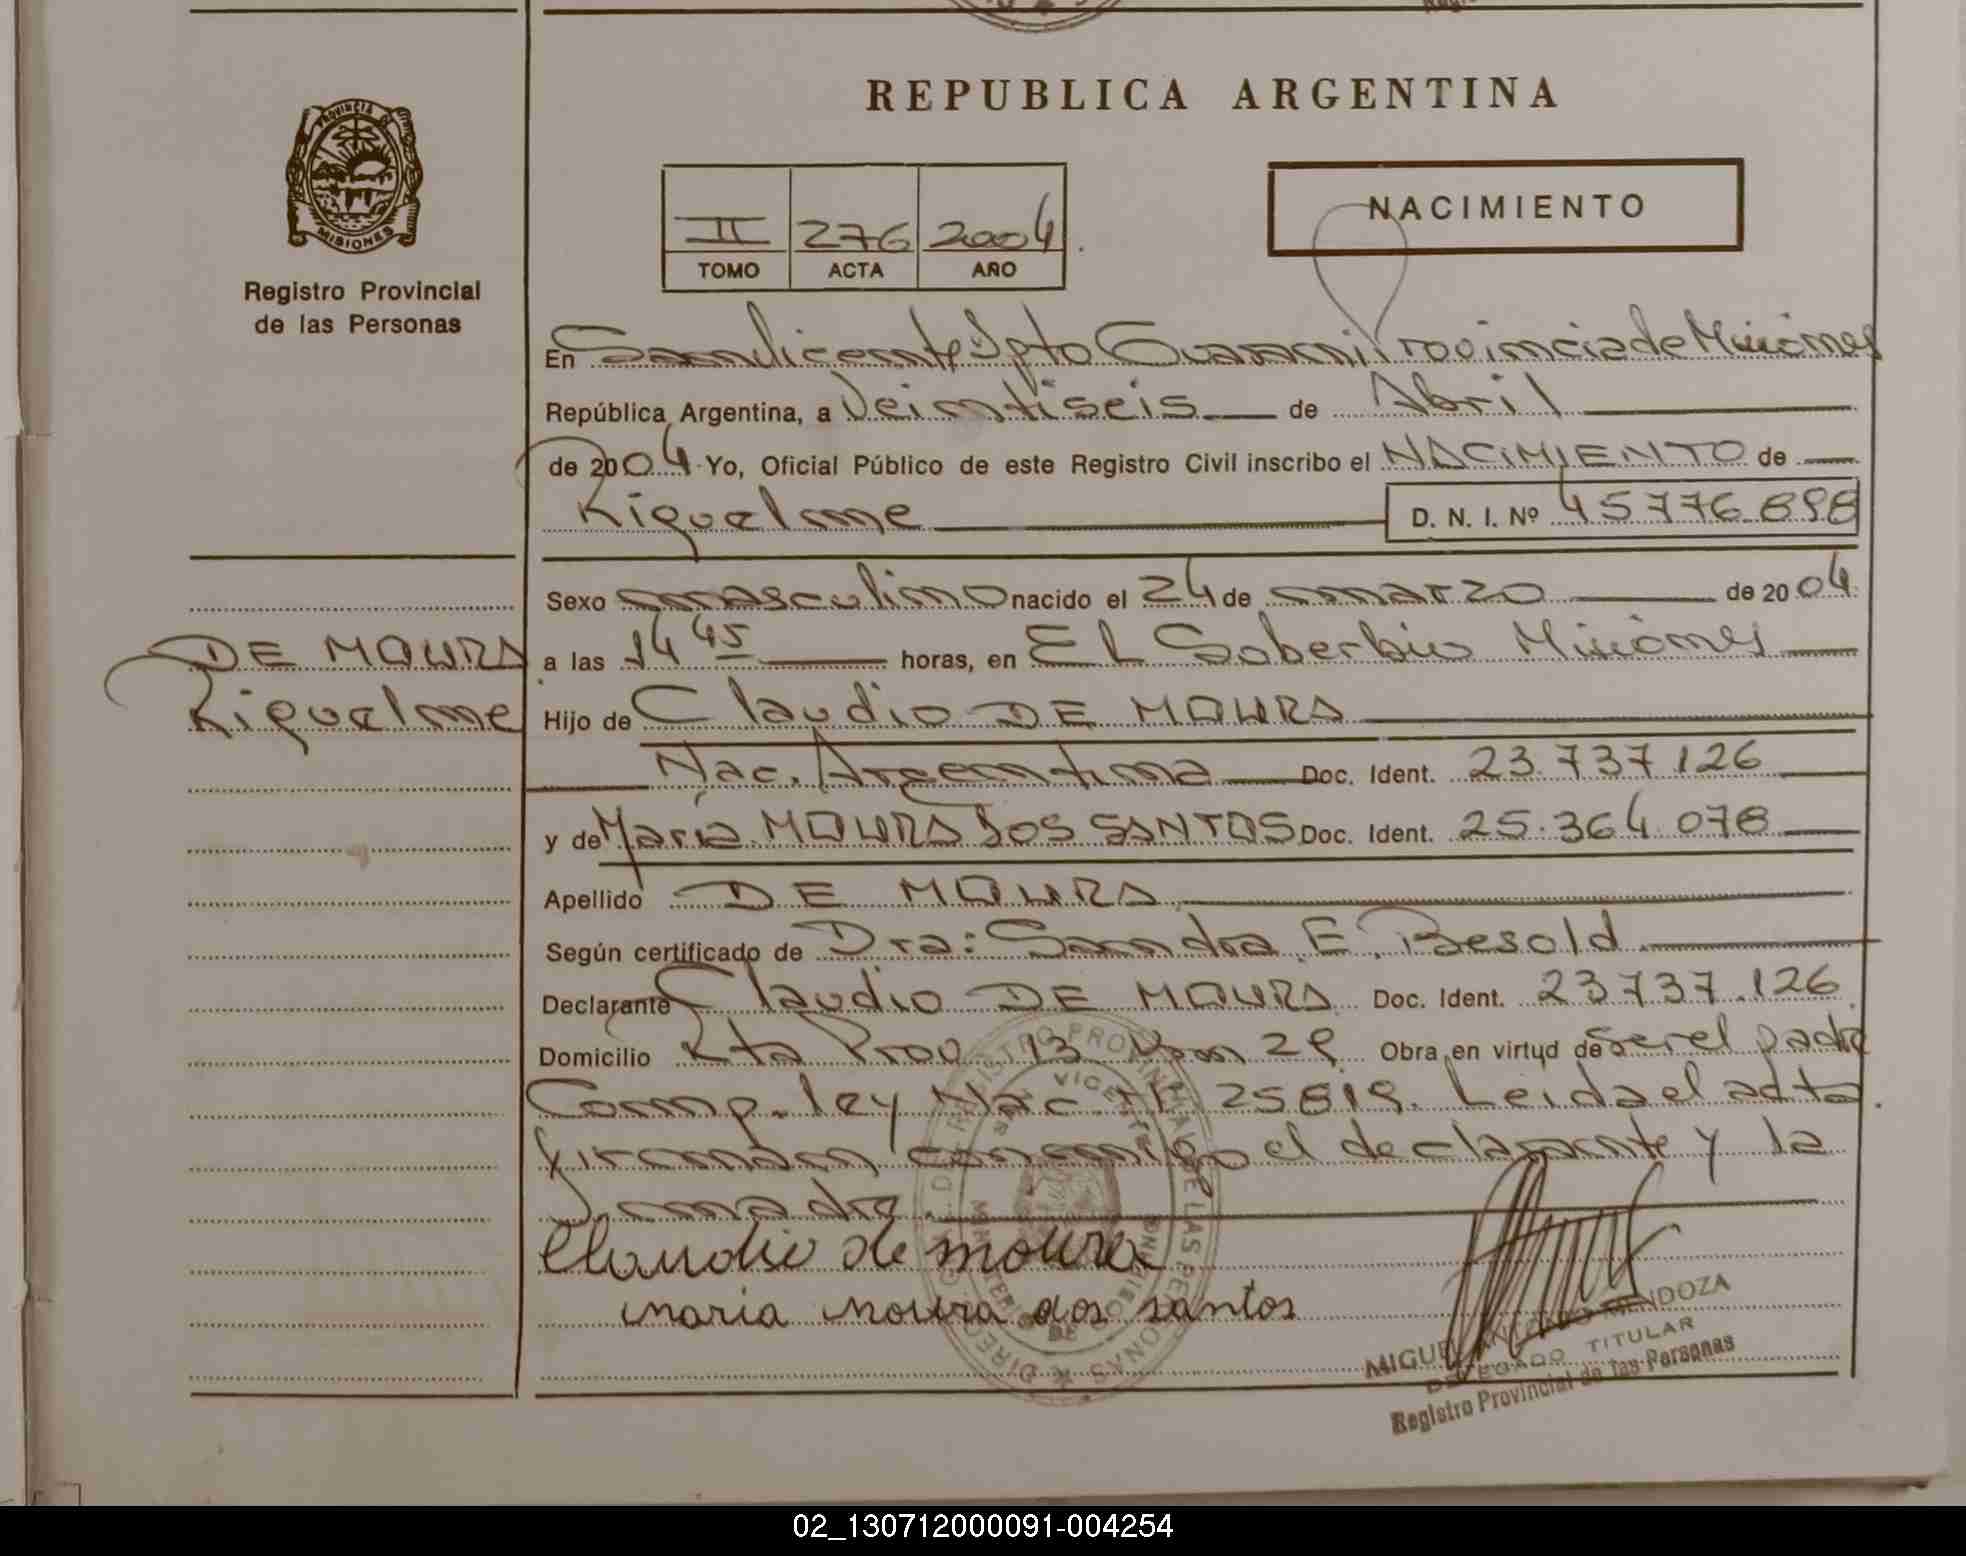 REPUBLICA ARGENTINA
PROVINCIA DE
MISIONES
Registro Provincial
de las Personas
II 276 2004
TOMO ACTA AÑO
NACIMIENTO
En San Vicente Dpto Guarani Provincia de Misiones
República Argentina, a Veintiseis de Abril
de 2004 Yo, Oficial Público de este Registro Civil inscribo el NACIMIENTO de
Riquelme D. N. I. Nº 45776.898
Sexo masculino nacido el 24 de marzo de 2004
DE MOURA
Riquelme
a las 14 45 horas, en El Soberbio Misiones
Hijo de Claudio DE MOURA
Nac. Argentina Doc. Ident. 23.737.126
y de Maria MOURA DOS SANTOS Doc. Ident. 25.364.078
Apellido DE MOURA
Según certificado de Dra: Sandra E. Besold
Declarante Claudio DE MOURA Doc. Ident. 23737.126
Domicilio Rta Prov 13 Km 29 Obra en virtud de ser el padre
Comp. ley Nac. Nº 25819. Leida el acta
Firman conmigo el declarante y la
madre.
Claudio de moura
maria moura dos santos
MIGUEL ANTONIO MENDOZA
DELEGADO TITULAR
Registro Provincial de las Personas
02_130712000091-004254